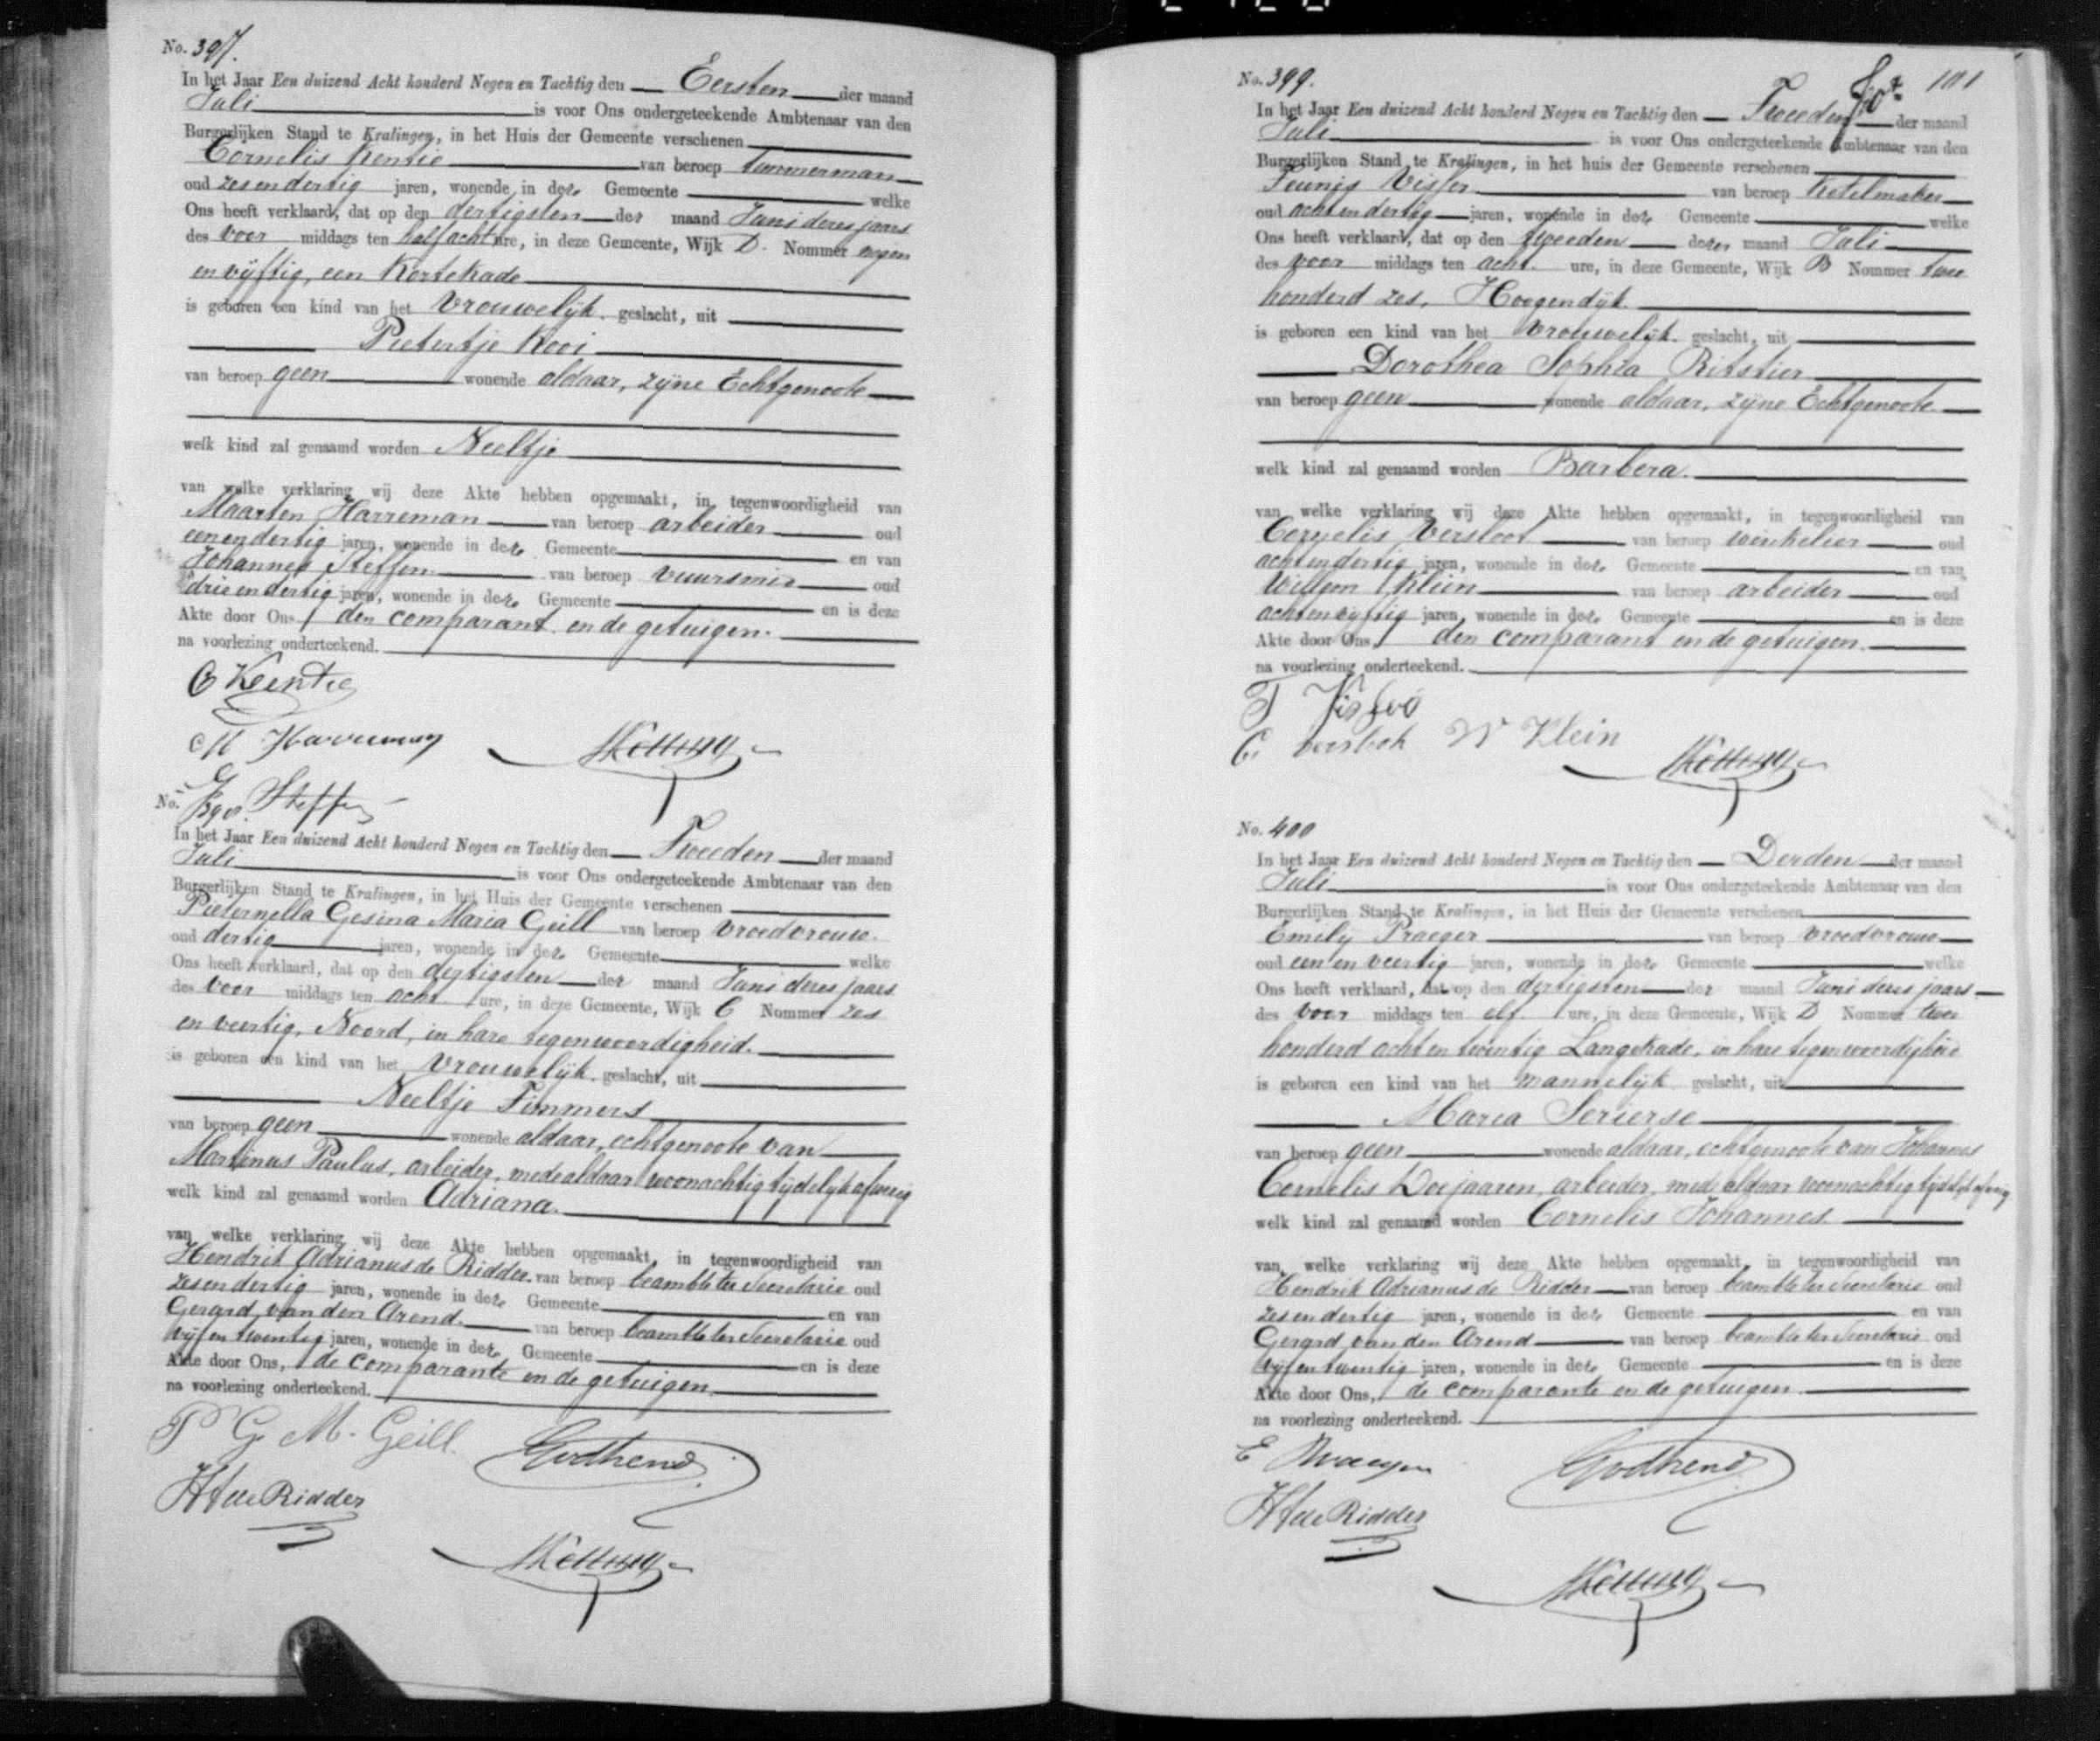 No. 397.
In het Jaar Een duizend Acht honderd Negen en Tachtig den Eersten der maand
Juli is voor Ons ondergeteekende Ambtenaar van den
Burgerlijken Stand te Kralingen, in het Huis der Gemeente verschenen
Cornelis Kentie van beroep timmerman
oud zesendertig jaren, wonende in deze Gemeente welke
Ons heeft verklaard, dat op den dertigsten der maand Juni dezes jaars
des voor middags ten half acht ure, in deze Gemeente, Wijk D. Nommer negen
en vijftig, een Kortekade
is geboren een kind van het Vrouwelijk geslacht, uit
Pietertje Kooi
van beroep geen wonende aldaar, zijne Echtgenoote
welk kind zal genaamd worden Neeltje
van welke verklaring wij deze Akte hebben opgemaakt, in tegenwoordigheid van
Maarten Harreman van beroep arbeider oud
eenendertig jaren, wonende in deze Gemeente en van
Johannes Steffen van beroep vuursmid oud
drieendertig jaren, wonende in deze Gemeente en is deze
Akte door Ons, den comparant en de getuigen.
na voorlezing onderteekend.
C Kentie
M Harreman
J Steffen
No. 398.
In het Jaar Een duizend Acht honderd Negen en Tachtig den Tweeden der maand
Juli is voor Ons ondergeteekende Ambtenaar van den
Burgerlijken Stand te Kralingen, in het Huis der Gemeente verschenen
Pieternella Gesina Maria Geill van beroep vroedvrouw.
oud dertig jaren, wonende in deze Gemeente welke
Ons heeft verklaard, dat op den dertigsten der maand Juni dezes jaars
des voor middags ten acht ure, in deze Gemeente, Wijk C Nommer zes
en veertig, Noord, in hare tegenwoordigheid.
is geboren een kind van het Vrouwelijk geslacht, uit
Neeltje Timmers
van beroep geen wonende aldaar, echtgenoote van
Martinus Paulus, arbeider, mede aldaar woonachtig tijdelijk afwezig
welk kind zal genaamd worden Adriana.
van welke verklaring wij deze Akte hebben opgemaakt, in tegenwoordigheid van
Hendrik Adrianus de Ridder van beroep beambte ter Secretarie oud
zesendertig jaren, wonende in deze Gemeente en van
Gerard van den Arend van beroep beambte ter Secretarie oud
vijfentwintig jaren, wonende in deze Gemeente en is deze
Akte door Ons, de comparante en de getuigen
na voorlezing onderteekend.
P G M. Geill
HA de Ridder
101
No. 399.
In het Jaar Een duizend Acht honderd Negen en Tachtig den Tweeden der maand
Juli is voor Ons ondergeteekende Ambtenaar van den
Burgerlijken Stand te Kralingen, in het huis der Gemeente verschenen
Teunis Visser van beroep Ketelmaker
oud achtendertig jaren, wonende in deze Gemeente welke
Ons heeft verklaard, dat op den tweeden dezer maand Juli
des voor middags ten acht ure, in deze Gemeente, Wijk B Nommer twee
honderd zes, Hoogendijk.
is geboren een kind van het Vrouwelijk geslacht, uit
Dorothea Sophia Ritstier
van beroep geen wonende aldaar, zijne Echtgenoote
welk kind zal genaamd worden Barbera.
van welke verklaring wij deze Akte hebben opgemaakt, in tegenwoordigheid van
Cornelis Versloot van beroep winkelier oud
achtendertig jaren, wonende in deze Gemeente en van
Willem Klein van beroep arbeider oud
achtenvijftig jaren, wonende in deze Gemeente en is deze
Akte door Ons, den comparant en de getuigen.
na voorlezing onderteekend.
T Visser
C. W Klein
No. 400
In het Jaar Een duizend Acht honderd Negen en Tachtig den Derden der maand
Juli is voor Ons ondergeteekende Ambtenaar van den
Burgerlijken Stand te Kralingen, in het Huis der Gemeente verschenen
Emely Praeger van beroep vroedvrouw
oud een en veertig jaren, wonende in deze Gemeente welke
Ons heeft verklaard, dat op den dertigsten der maand Juni dezes jaars
des voor middags ten elf ure, in deze Gemeente, Wijk D Nommer twee
honderd acht en twintig Langekade, in hare tegenwoordigheid
is geboren een kind van het mannelijk geslacht, uit
Maria Serierse
van beroep geen wonende aldaar, echtgenoote van Johannes
Cornelis Doejaaren, arbeider, mede aldaar woonachtig tijdelijk afwezig
welk kind zal genaamd worden Cornelis Johannes
van welke verklaring wij deze Akte hebben opgemaakt, in tegenwoordigheid van
Hendrik Adrianus de Ridder van beroep beambte ter Secretarie oud
zesendertig jaren, wonende in deze Gemeente en van
Gerard van den Arend van beroep beambte ter Secretarie oud
vijfentwintig jaren, wonende in deze Gemeente en is deze
Akte door Ons, de comparante en de getuigen.
na voorlezing onderteekend.
E Praeger
HA de Ridder